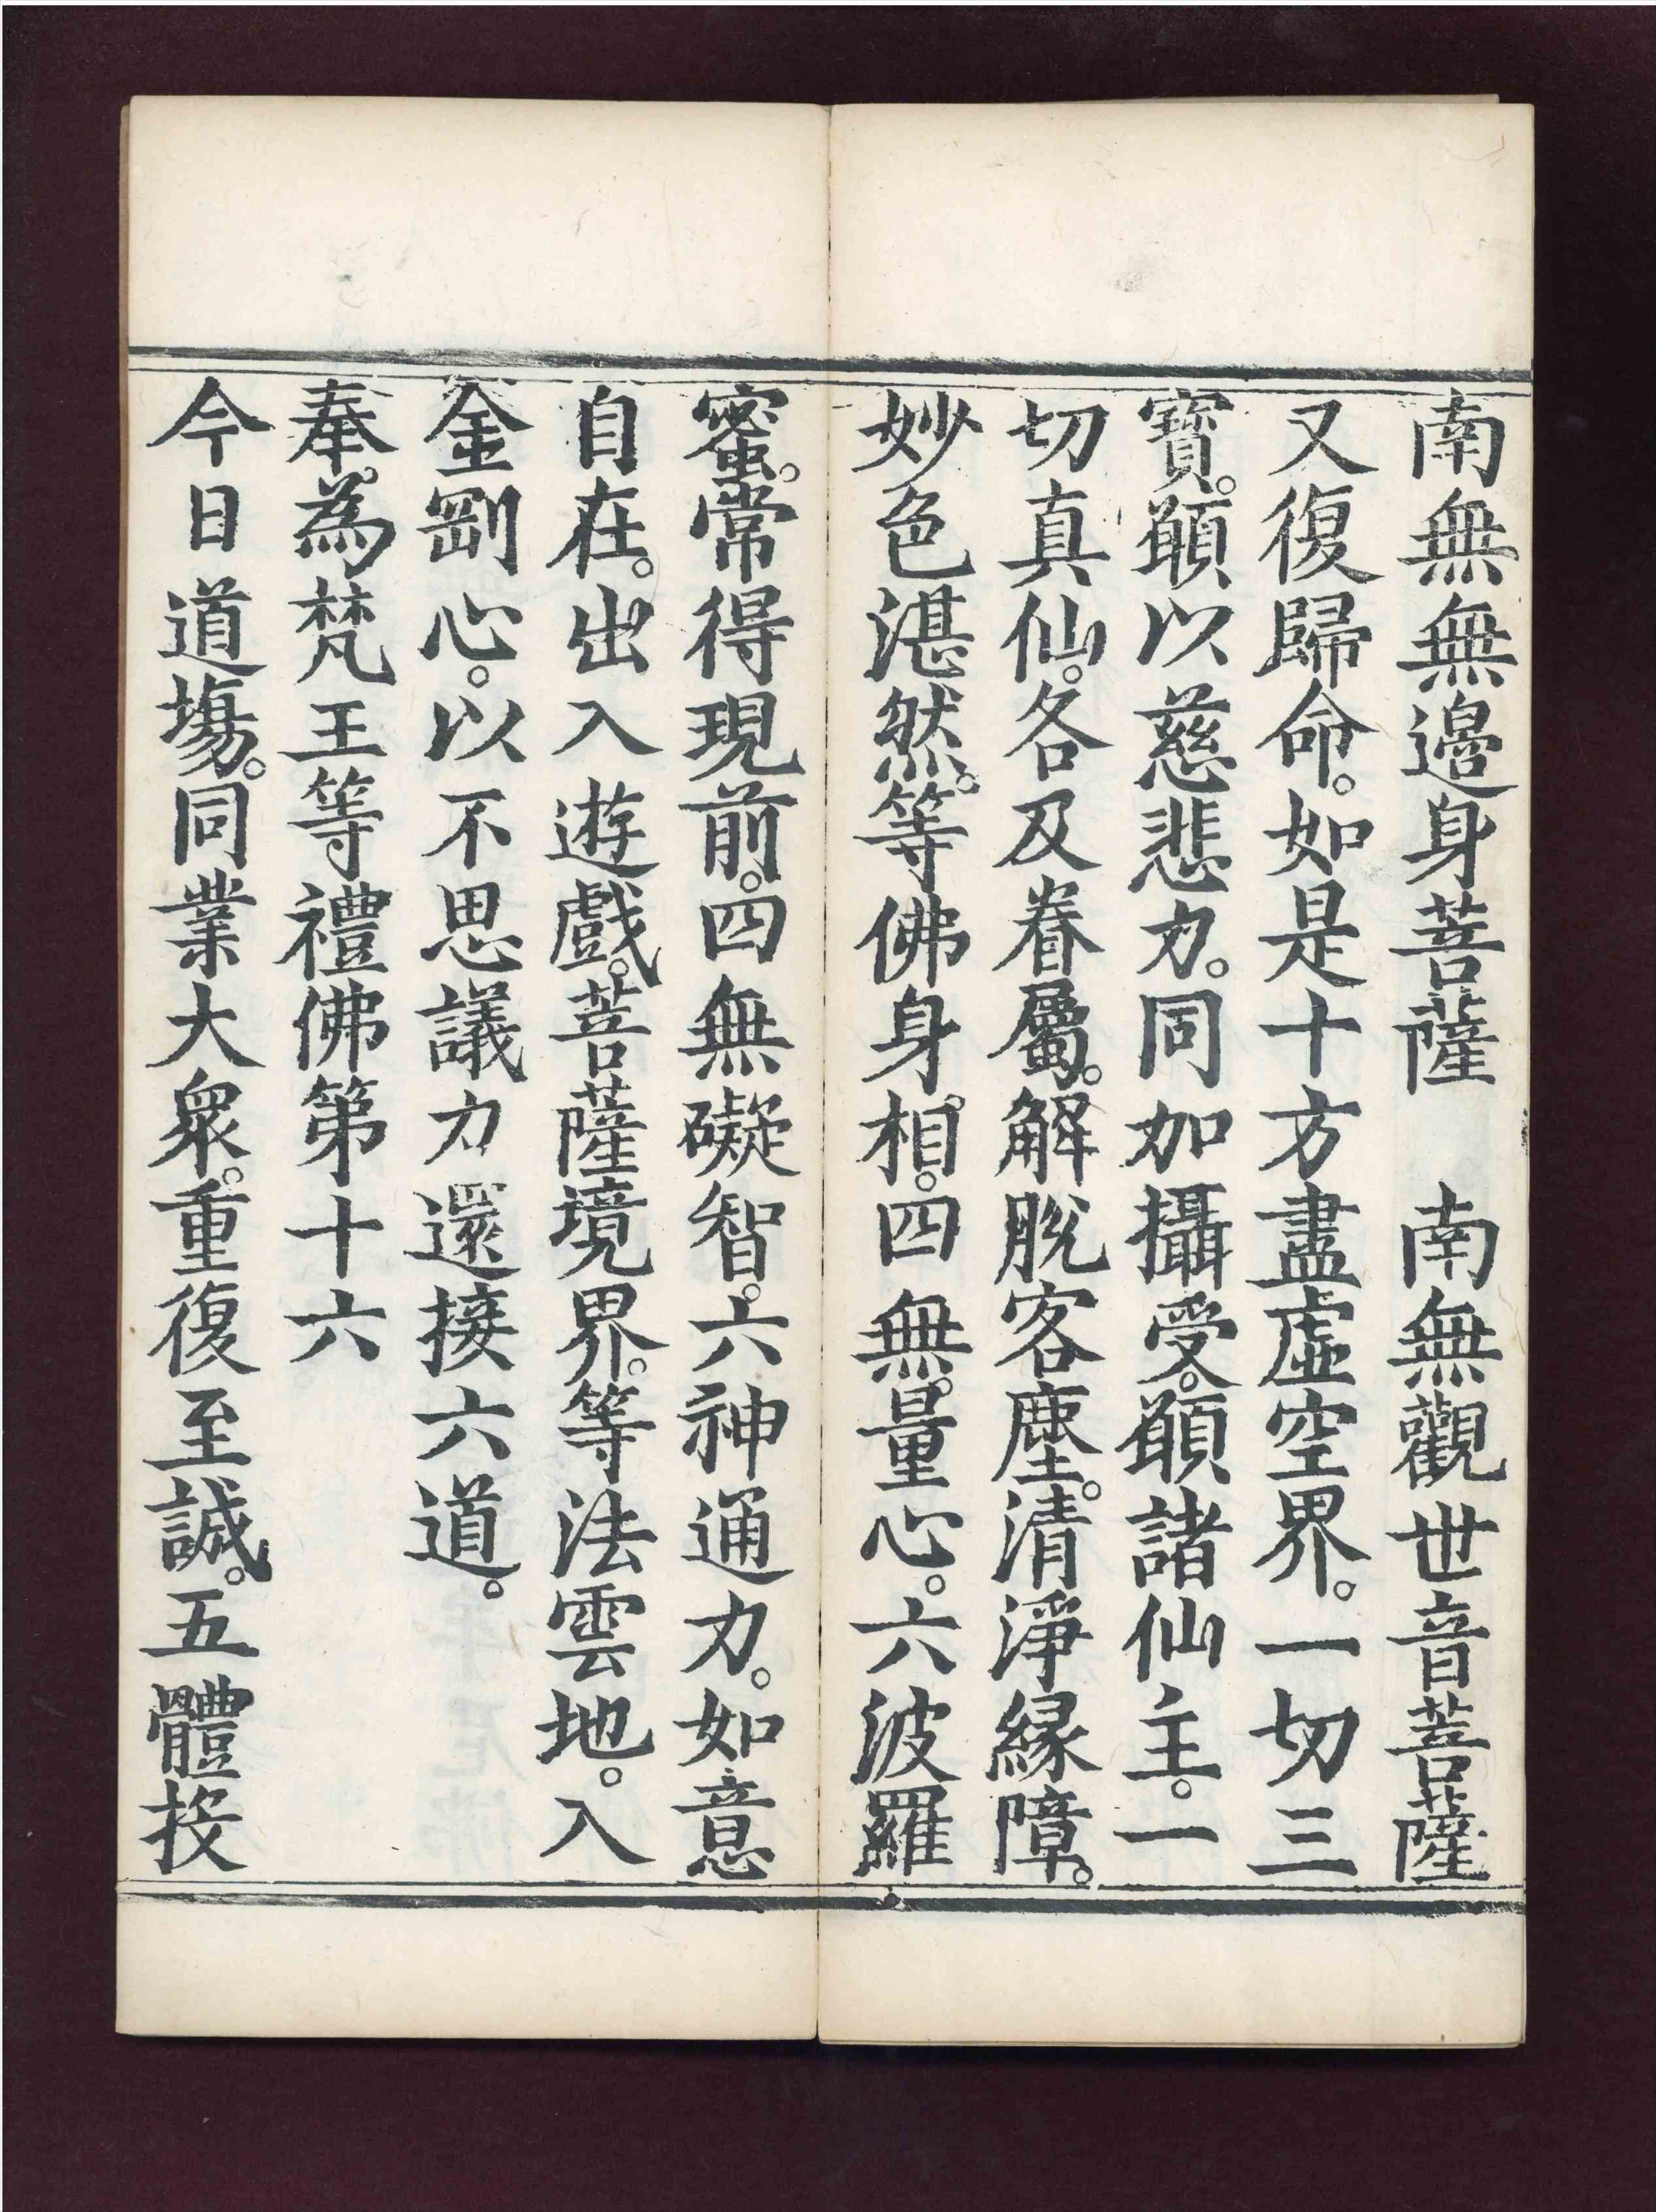 南無無邊身菩薩　南無觀世音菩薩
又復歸命。如是十方盡虛空界。一切三
寶。願以慈悲力。同加攝受。願諸仙主。一
切真仙。各及眷屬。解脫客塵。清淨緣障。
妙色湛然。等佛身相。四無量心。六波羅
蜜。常得現前。四無礙智。六神通力。如意
自在。出入遊戲。菩薩境界。等法雲地。入
金剛心。以不思議力還接六道。
奉。為梵王等禮佛第十六
今日道場。同業大眾。重復至誠。五體投